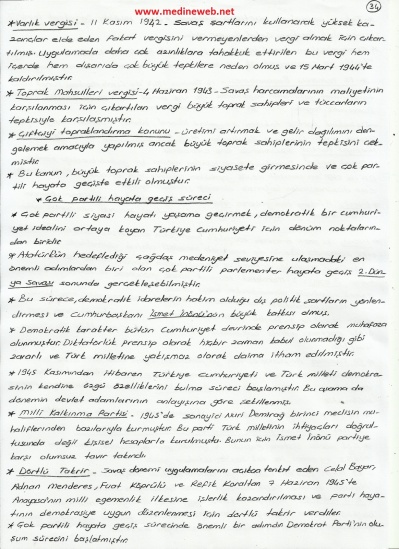 www.medineweb.net
34
* Varlık vergisi - 11 Kasım 1942 - Savaş şartlarını kullanarak yüksek ka-
zançlar elde eden fakat vergisini vermeyenlerden vergi almak için çıkar-
tılmış. Uygulamada daha çok azınlıklara tahakkuk ettirilen bu vergi hem
içerde hem dışarıda çok büyük tepkilere neden olmuş ve 15 Mart 1944'te
kaldırılmıştır.
* Toprak Mahsulleri vergisi - 4 Haziran 1943 - Savaş harcamalarının maliyetinin
karşılanması için çıkartılan vergi büyük toprak sahipleri ve tüccarların
tepkisiyle karşılaşmıştır.
* Çiftçiyi topraklandırma konunu - üretimi artırmak ve gelir dağılımını den-
gelemek amacıyla yapılmış ancak büyük toprak sahiplerinin tepkisini çek-
miştir.
* Bu kanun, büyük toprak sahiplerinin siyasete girmesinde ve çok par-
tili hayata geçişte etkili olmuştur.
* Çok partili hayata geçiş süreci
* Çok partili siyasi hayatı yaşama geçirmek, demokratik bir cumhuri-
yet idealini ortaya koyan Türkiye Cumhuriyeti için dönüm noktaların-
dan biridir.
* Atatürk'ün hedeflediği çağdaş medeniyet seviyesine ulaşmadaki en
önemli adımlardan biri olan çok partili parlementer hayata geçiş 2. Dün-
ya savaşı sonunda gerçekleşebilmiştir.
* Bu sürece, demokratik idarelerin hakim olduğu dış politik şartların yönlen-
dirmesi ve Cumhurbaşkanı İsmet İnönü'nün büyük katkısı olmuş.
* Demokratik karakter bütün Cumhuriyet devrinde prensip olarak muhafaza
olunmuştur. Diktatörlük prensip olarak hiçbir zaman kabul olunmadığı gibi
zararlı ve Türk milletine yakışmaz olarak daima itham edilmiştir.
* 1945 Kasımından itibaren Türkiye cumhuriyeti ve Türk milleti demokra-
sinin kendine özgü özelliklerini bulma süreci başlamıştır. Bu aşama da
dönemin devlet adamlarının anlayışına göre şekillenmiş.
* Milli Kalkınma Partisi - 1945'de sanayici Nuri Demirağ birinci meclisin mu-
haliflerinden bazılarıyla kurmuştur. Bu parti Türk milletinin ihtiyaçları doğrul-
tusunda değil kişisel hesaplarla kurulmuştu. Bunun için İsmet İnönü partiye
karşı olumsuz tavır takındı.
* Dörtlü Takrir - Savaş dönemi uygulamalarını açıkça tenkit eden Celal Bayar,
Adnan Menderes, Fuat Köprülü ve Refik Koraltan 7 Haziran 1945'te
Anayasa'nın milli egemenlik ilkesine işlerlik kazandırılması ve parti haya-
tının demokrasiye uygun düzenlenmesi için dörtlü takrir verdiler.
* Çok partili hayata geçiş sürecinde önemli bir adımdan Demokrat Parti'nin olu-
şum sürecini başlatmıştır.